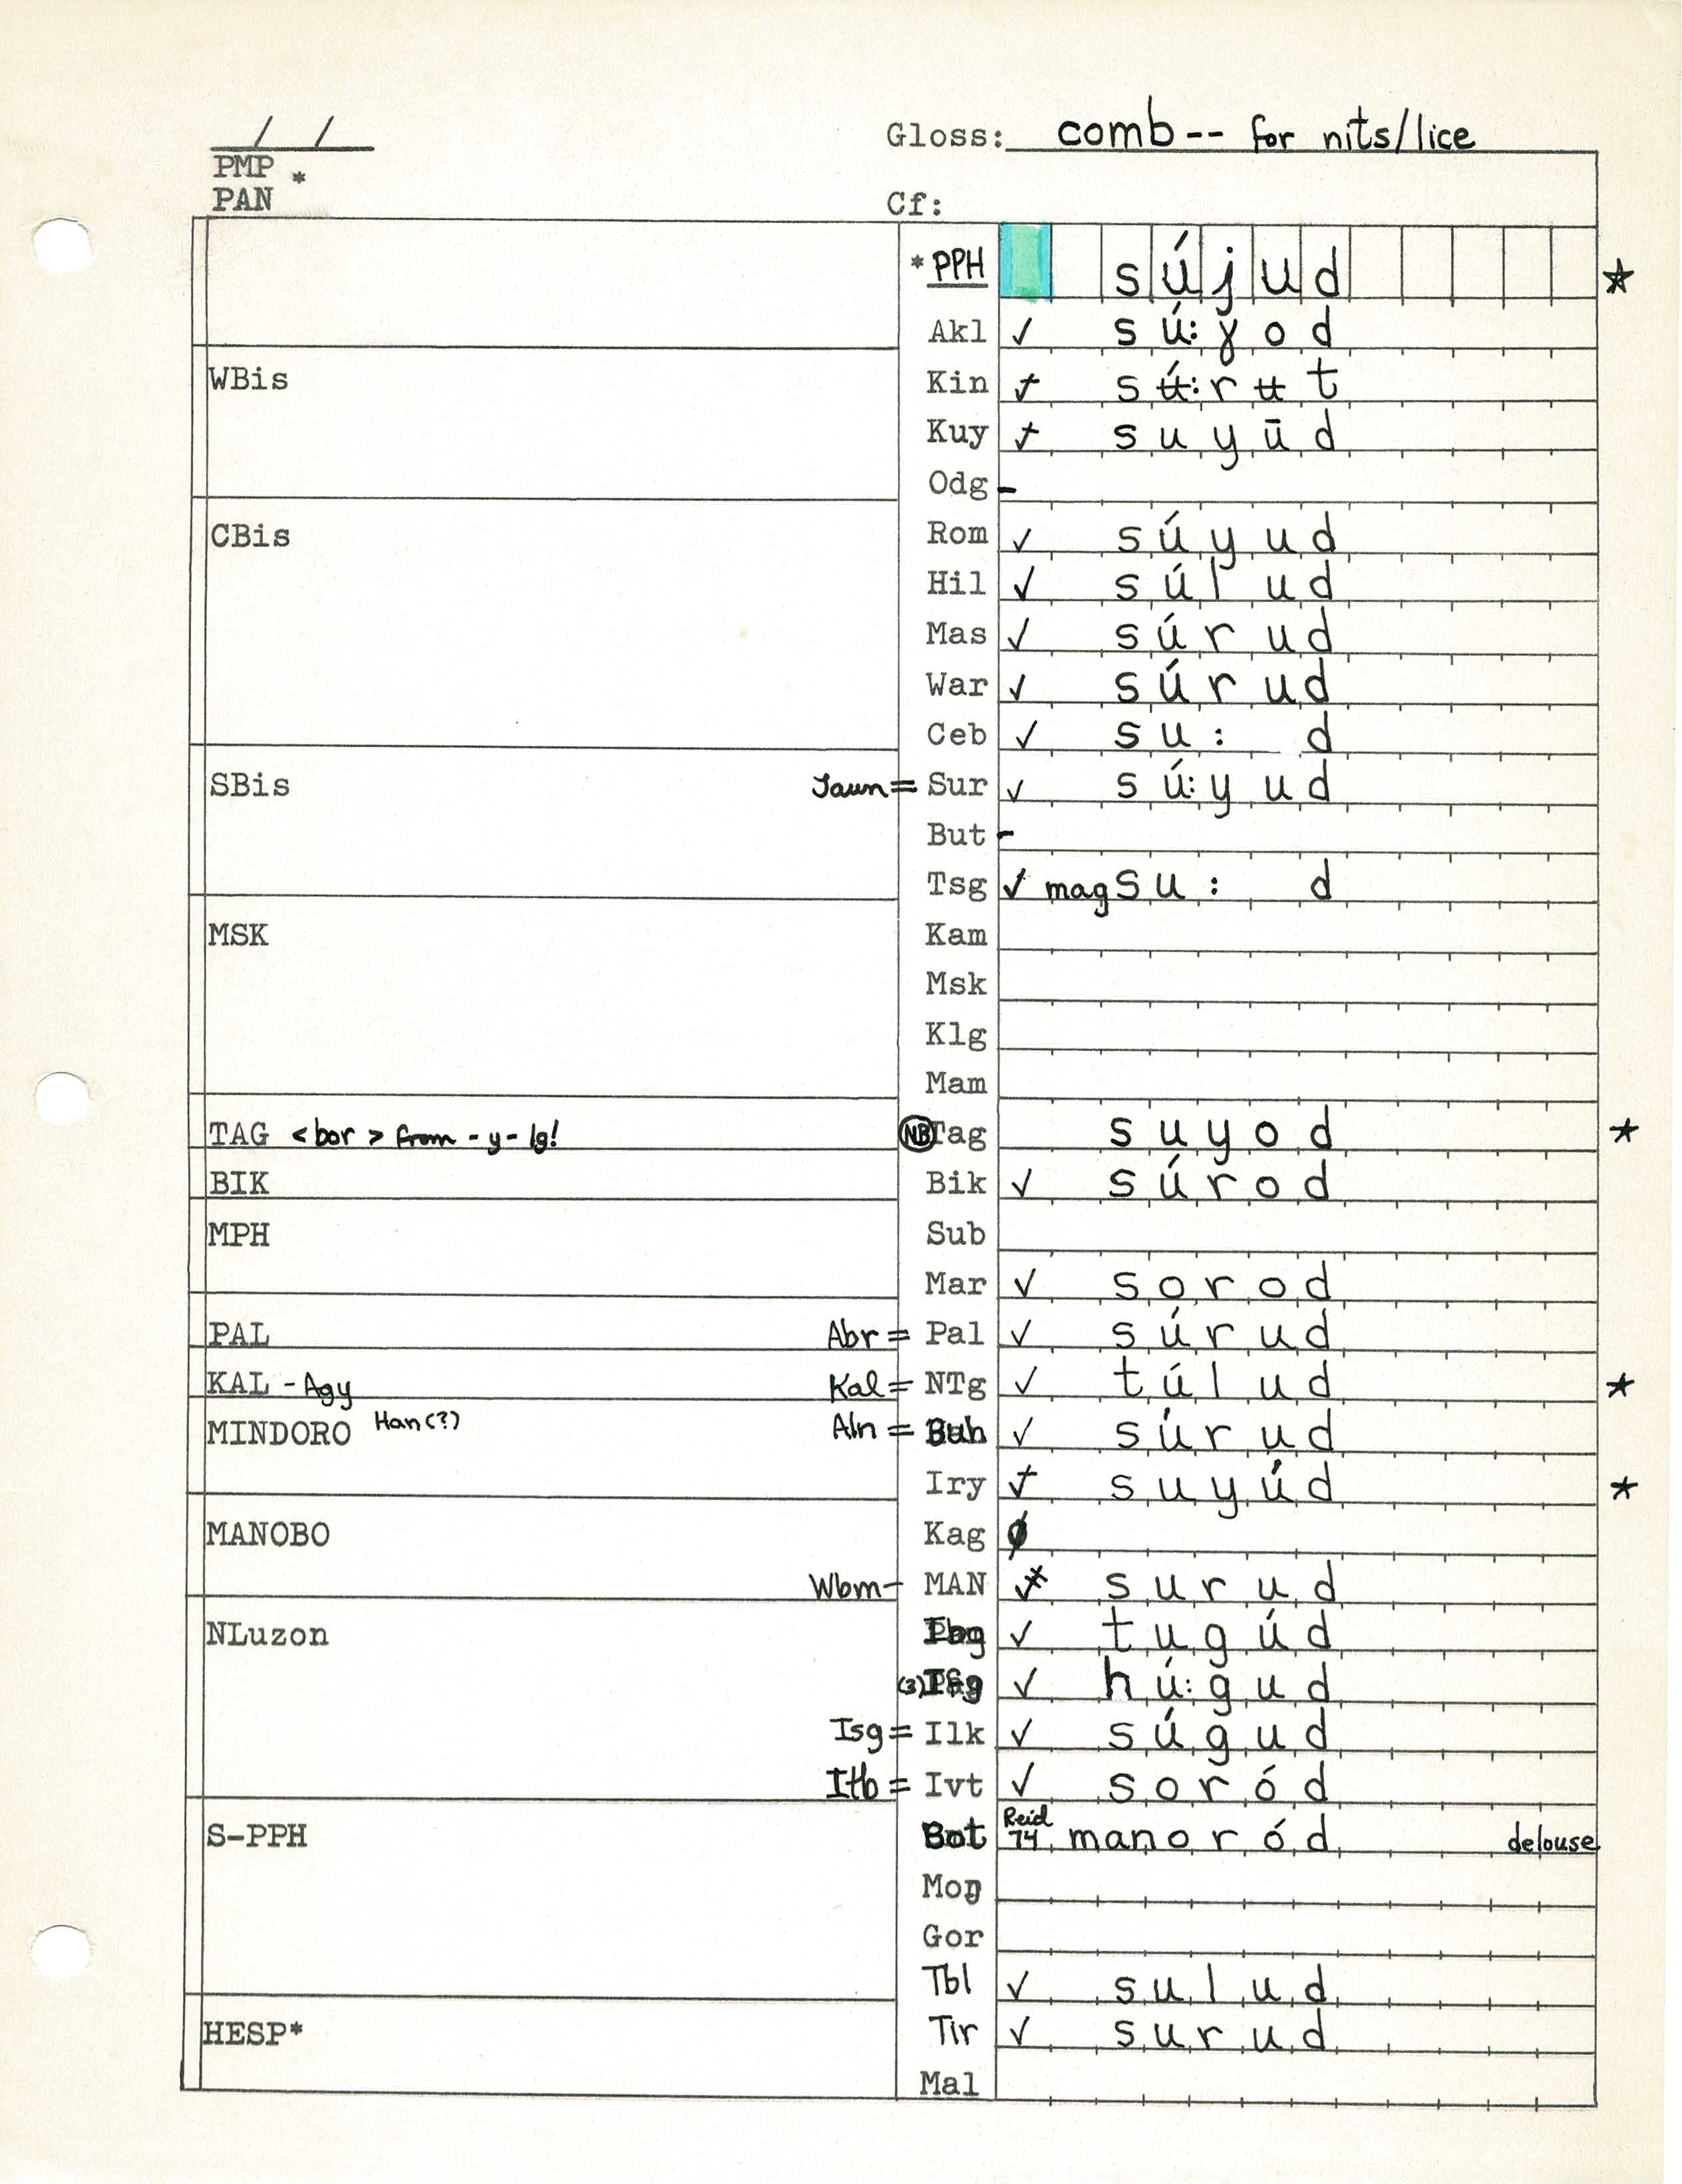 / /
Gloss: comb -- for nits/lice
PMP *
PAN
Cf:
* PPH sújud ☆
Akl ✓ sú:ɣod
WBis
Kin sʉ́:rʉt
Kuy suyūd
Odg -
CBis
Rom ✓ súyud
Hil ✓ súlud
Mas ✓ súrud
War ✓ súrud
Ceb ✓ su: d
SBis Jaun = Sur ✓ sú:yud
But -
Tsg ✓ magsu: d
MSK
Kam
Msk
Klg
Mam
TAG <bor> from -y- lg! NB Tag suyod ☆
BIK Bik ✓ súrod
MPH Sub
Mar ✓ sorod
PAL Abr = Pal ✓ súrud
KAL - Agy Kal = NTg ✓ túlud ☆
MINDORO Han(?) Aln = Buh ✓ súrud
Iry suyúd ☆
MANOBO Kag ø
Wbm- MAN surud
NLuzon Ibg ✓ tugúd
(3) Ifg ✓ hú:gud
Isg = Ilk ✓ súgud
Itb = Ivt ✓ soród
S-PPH Bot Reid 74 manoród delouse
Moŋ
Gor
Tbl ✓ sulud
HESP* Tir ✓ surud
Mal